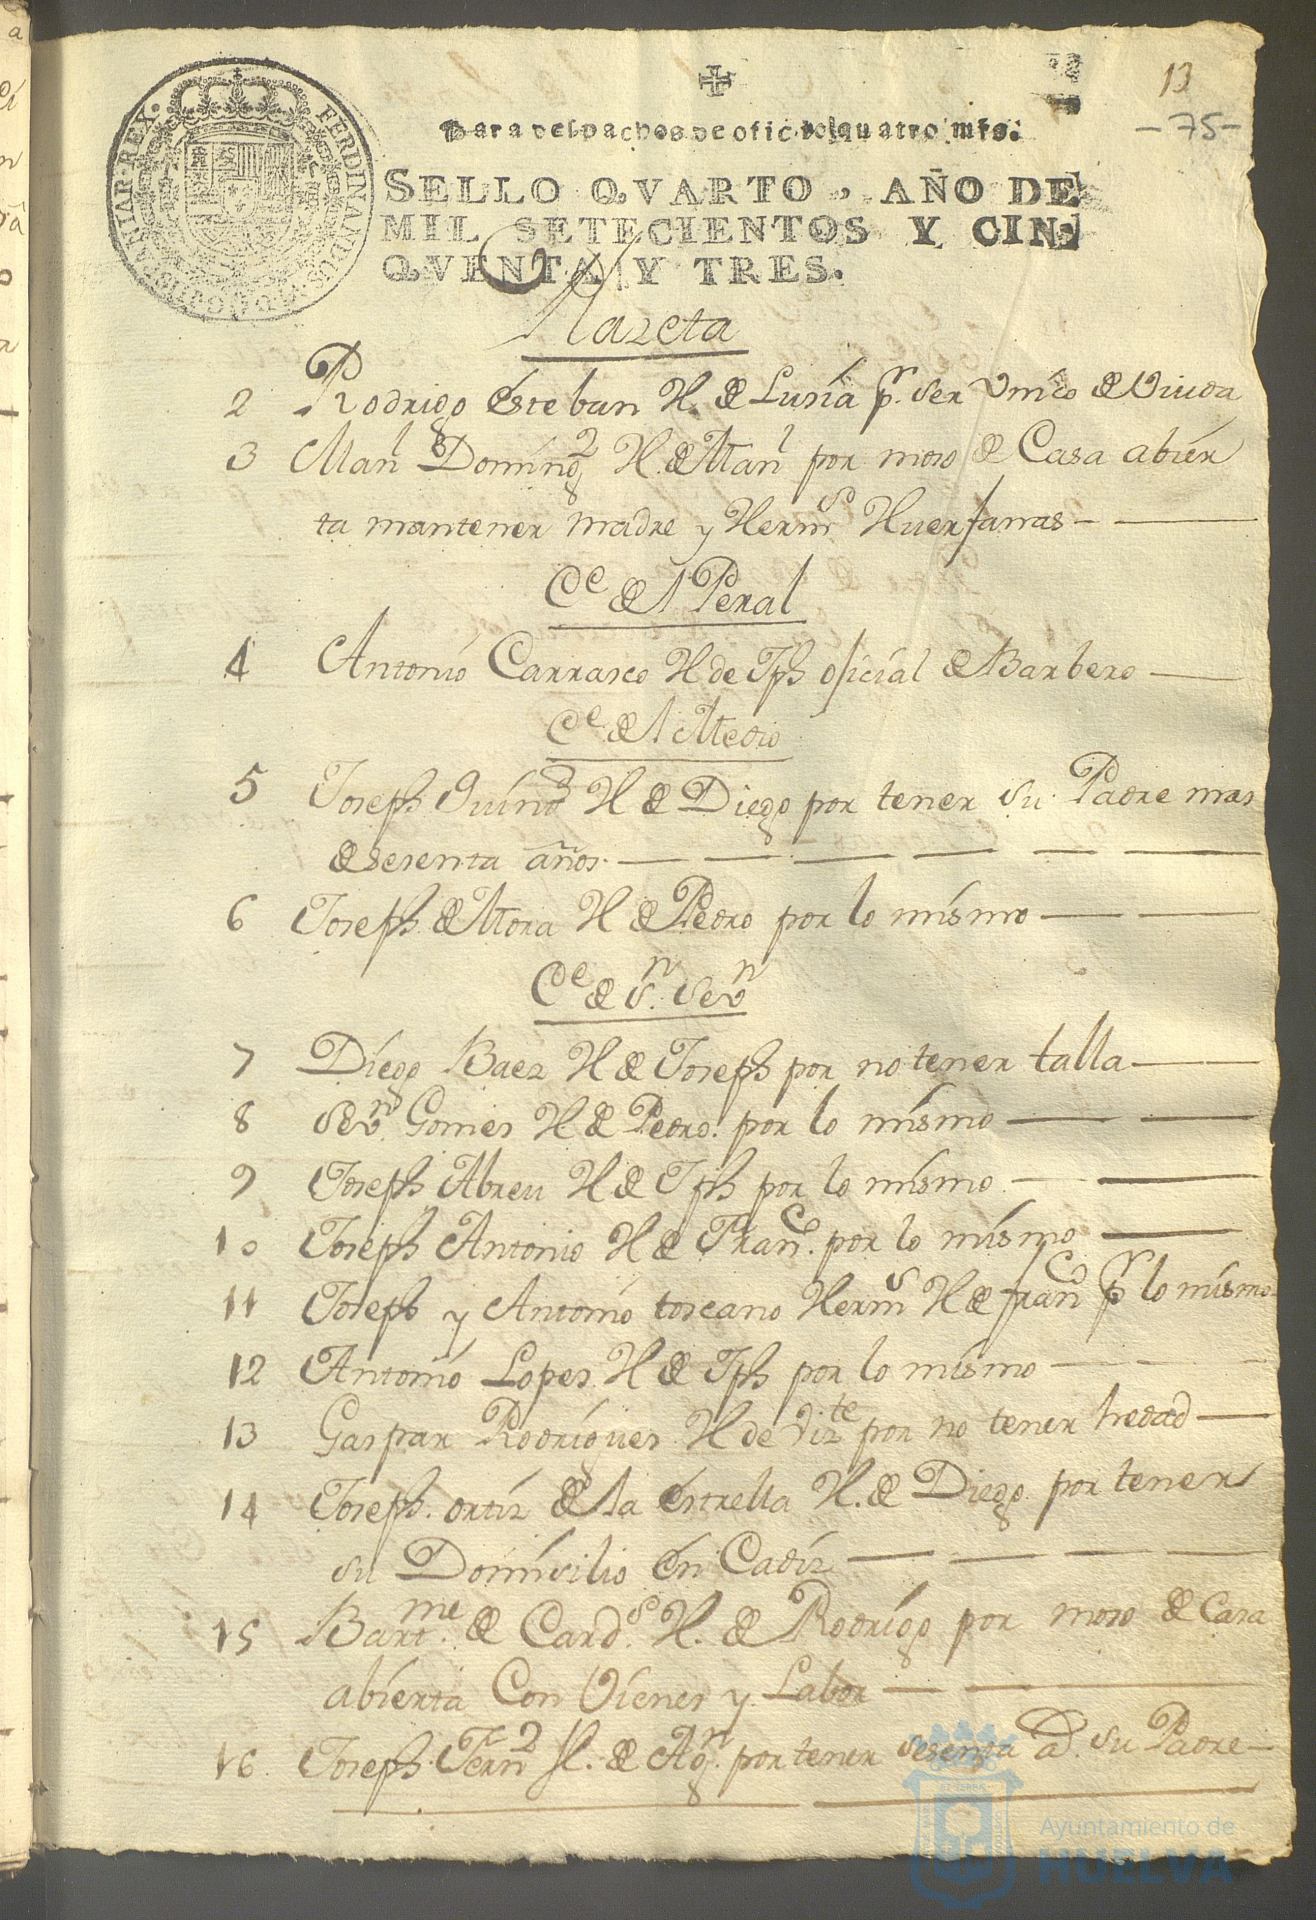 13
-75-
Para despachos de ofic. dos quatro mrs.
SELLO QVARTO, AÑO DE
MIL SETECIENTOS Y CIN-
QVENTA Y TRES.
FERDINANDUS
HISPANIAR·REX·
Razeta
2 Rodrigo esteban H. de Lusia pr. ser Vnico de Viuda
3 Manl Domingz H. de Manl por moso de Casa abier
ta mantener madre y Herms Huerfanas
Ce del Peral
4 Antonio Carrasco H de Jph oficial de Barbero
Ce del Medio
5 Joseph H de Diego por tener su Padre mas
de sesenta años
6 Joseph de Mora H de Pedro por lo mismo
Ce de Sn. Sevn
7 Diego Baez H de Joseph por no tener talla
8 Sevn Gomes H de Pedro. por lo mismo
9 Joseph Abreu H de Jph por lo mismo
10 Joseph Antonio H de Franco. por lo mismo
11 Joseph y Antonio toscano Herms H de franco pr lo mismo
12 Antonio Lopes H de Jph por lo mismo
13 Gaspar Rodrigues H de Vizte por no tener hedad
14 Joseph. ortiz de la estrella H. de Diego por tener
su Domisilio en Cadiz
15 Bartme. de Cards. H. de Rodrigo por moso de Casa
abierta Con Vienes y Labor
16 Joseph Fernz H. de Agn. por tener sesenta a. su Padre
Ayuntamiento de
HUELVA